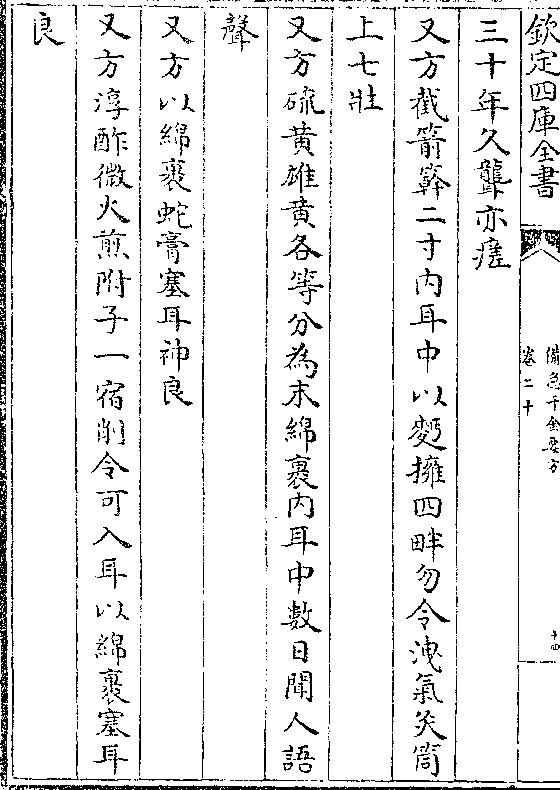 欽定四庫全書
備急千金要方
卷二十
十四
三十年久聾亦瘥
又方截箭簳二寸内耳中以麪擁四畔勿令洩氣灸筒
上七壯
又方硫黄雄黄各等分為末綿裹内耳中數日聞人語
聲
又方以綿裹蛇膏塞耳神良
又方淳酢微火煎附子一宿削令可入耳以綿裹塞耳
良